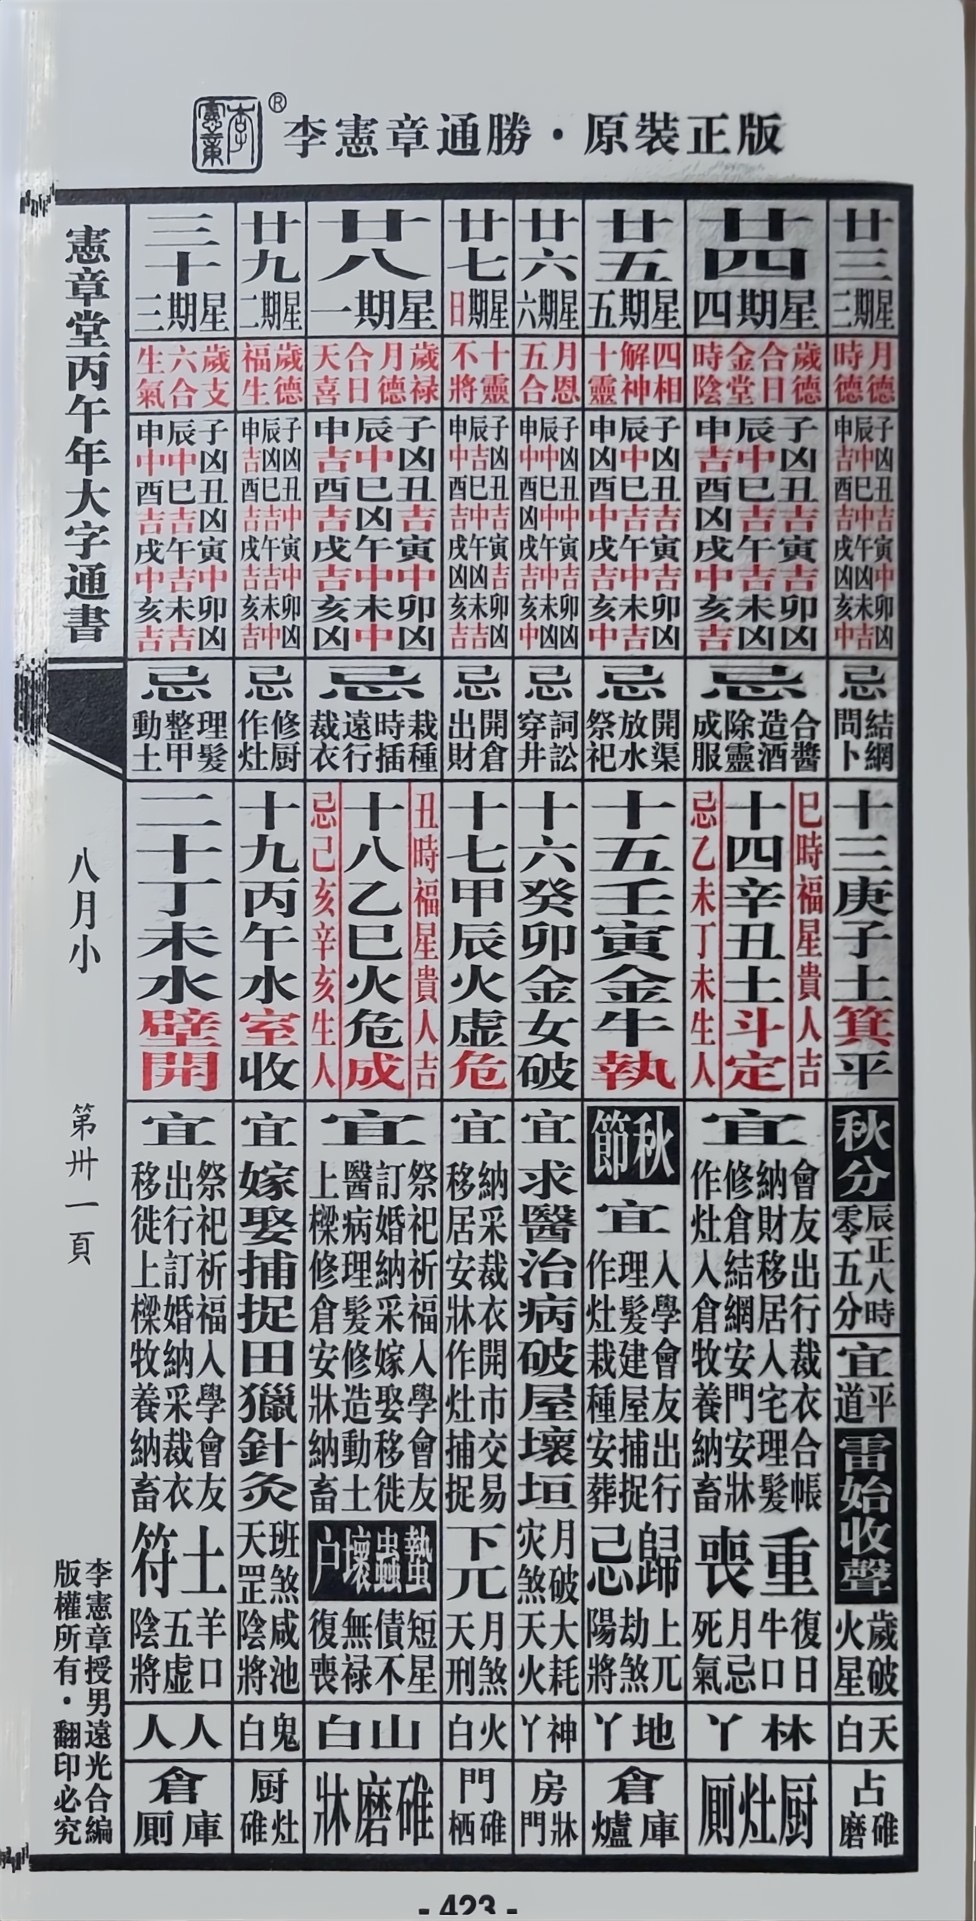 李憲章
®
李憲章通勝・原裝正版
廿三
星期三
月德
時德
子凶丑吉寅中卯凶
辰中巳中午凶未吉
申吉酉吉戌凶亥中
忌
結網
問卜
十三庚子土箕平
秋分
辰正八時
零五分
宜
平
道
雷始收聲
歲破
火星
天白
占
碓磨
廿四
星期四
歲德
合日
金堂
時陰
子凶丑吉寅吉卯凶
辰中巳吉午吉未凶
申吉酉凶戌中亥吉
忌
合醬
造酒
除靈
成服
巳時福星貴人吉
十四辛丑土斗定
忌乙未丁未生人
宜
會友出行裁衣合帳
納財移居入宅理髮
修倉結網安門安牀
作灶入倉牧養納畜
重喪
復日
牛口
月忌
死氣
林丫
厨灶厠
廿五
星期五
四相
解神
十靈
子凶丑吉寅吉卯凶
辰中巳吉午中未吉
申凶酉中戌吉亥中
忌
開渠
放水
祭祀
十五壬寅金牛執
秋節
宜
入學會友出行
理髮建屋捕捉
作灶栽種安葬
歸忌
上兀
劫煞
陽將
地丫
倉
庫爐
廿六
星期六
月恩
五合
子凶丑中寅吉卯凶
辰中巳中午中未凶
申中酉凶戌吉亥中
忌
詞訟
穿井
十六癸卯金女破
宜
求醫治病破屋壞垣
月破
灾煞
大耗
天火
神丫
房
牀門
廿七
星期日
十靈
不將
子凶丑吉寅吉卯凶
辰吉巳中午凶未吉
申中酉吉戌凶亥吉
忌
開倉
出財
十七甲辰火虛危
宜
納采裁衣開市交易
移居安牀作灶捕捉
下元
月煞
天刑
火白
門
碓栖
廿八
星期一
歲禄
月德
合日
天喜
子凶丑吉寅中卯凶
辰中巳凶午中未中
申吉酉吉戌吉亥凶
忌
栽種
時插
遠行
裁衣
丑時福星貴人吉
十八乙巳火危成
忌己亥辛亥生人
宜
祭祀祈福入學會友
訂婚納采嫁娶移徙
醫病理髮修造動土
上樑修倉安牀納畜
蟄蟲壞户
短星
債不
無禄
復喪
山白
碓磨牀
廿九
星期二
歲德
福生
子凶丑中寅中卯凶
辰凶巳吉午吉未中
申吉酉吉戌吉亥吉
忌
修厨
作灶
十九丙午水室收
宜
嫁娶捕捉田獵針灸
班煞
天罡
咸池
陰將
鬼白
厨
灶碓
三十
星期三
歲支
六合
生氣
子凶丑凶寅中卯凶
辰中巳吉午吉未吉
申中酉吉戌中亥吉
忌
理髮
整甲
動土
二十丁未水壁開
宜
祭祀祈福入學會友
出行訂婚納采裁衣
移徙上樑牧養納畜
土符
羊口
五虛
陰將
人人
倉
庫厠
憲章堂丙午年大字通書
八月小
第卅一頁
李憲章授男遠光合編
版權所有・翻印必究
- 423 -